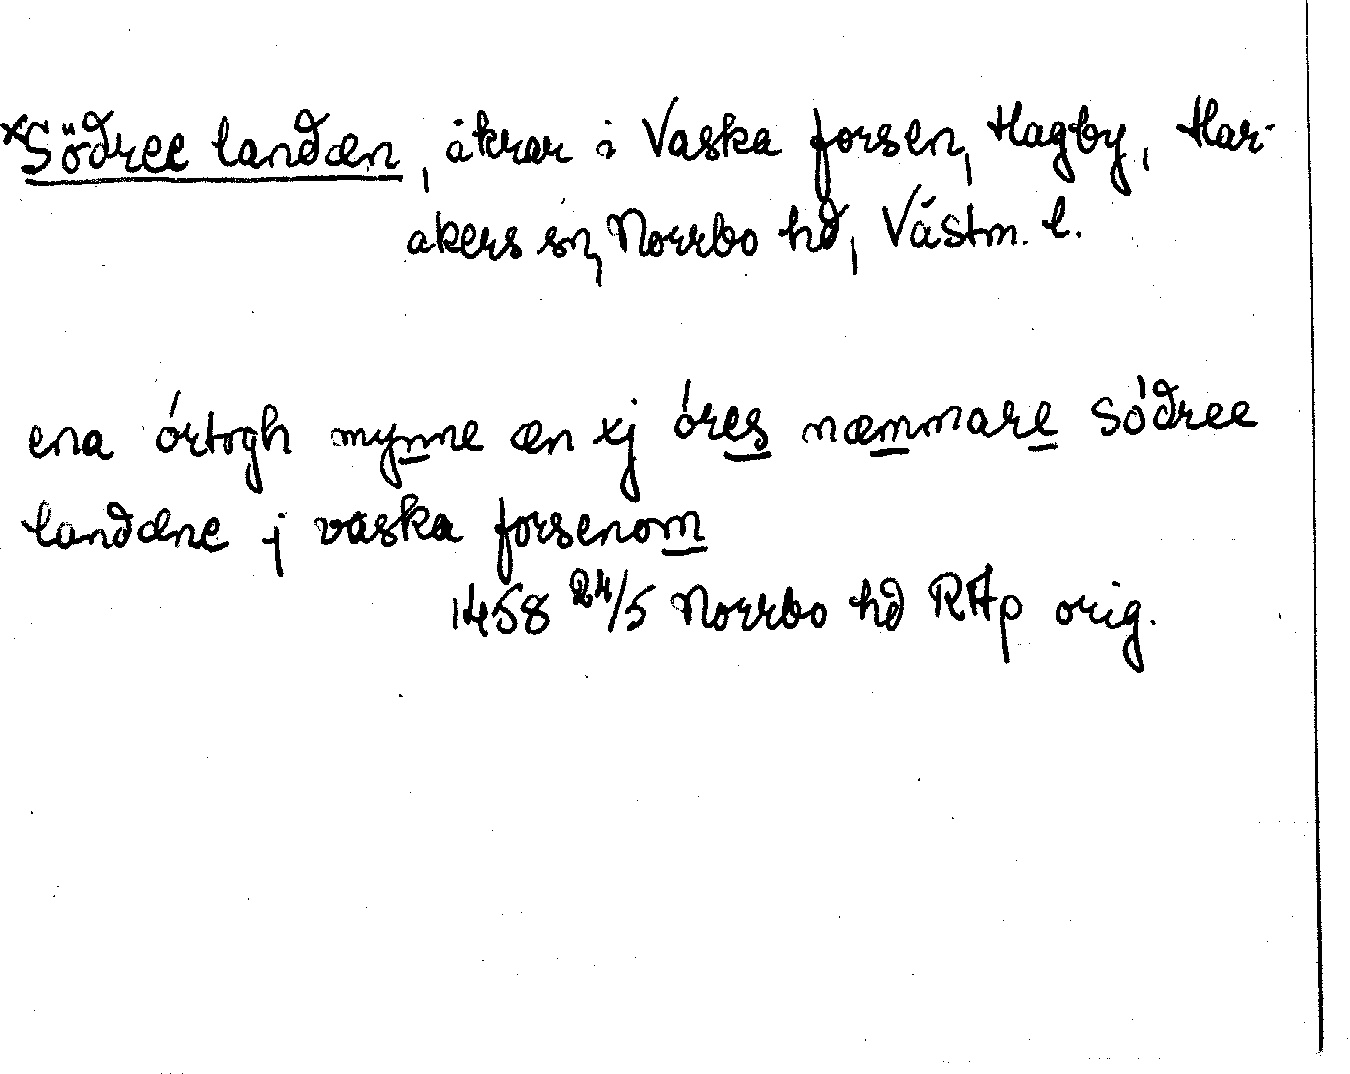 ×Södree landæn, åkrar i Vaska forsen, Hagby, Har-
akers sn, Norrbo hd, Västm. l.
ena órtogh mynne æn xj óres næmmare Sódree
landæne j vaska forsenom
1458 24/5 Norrbo hd RAp orig.